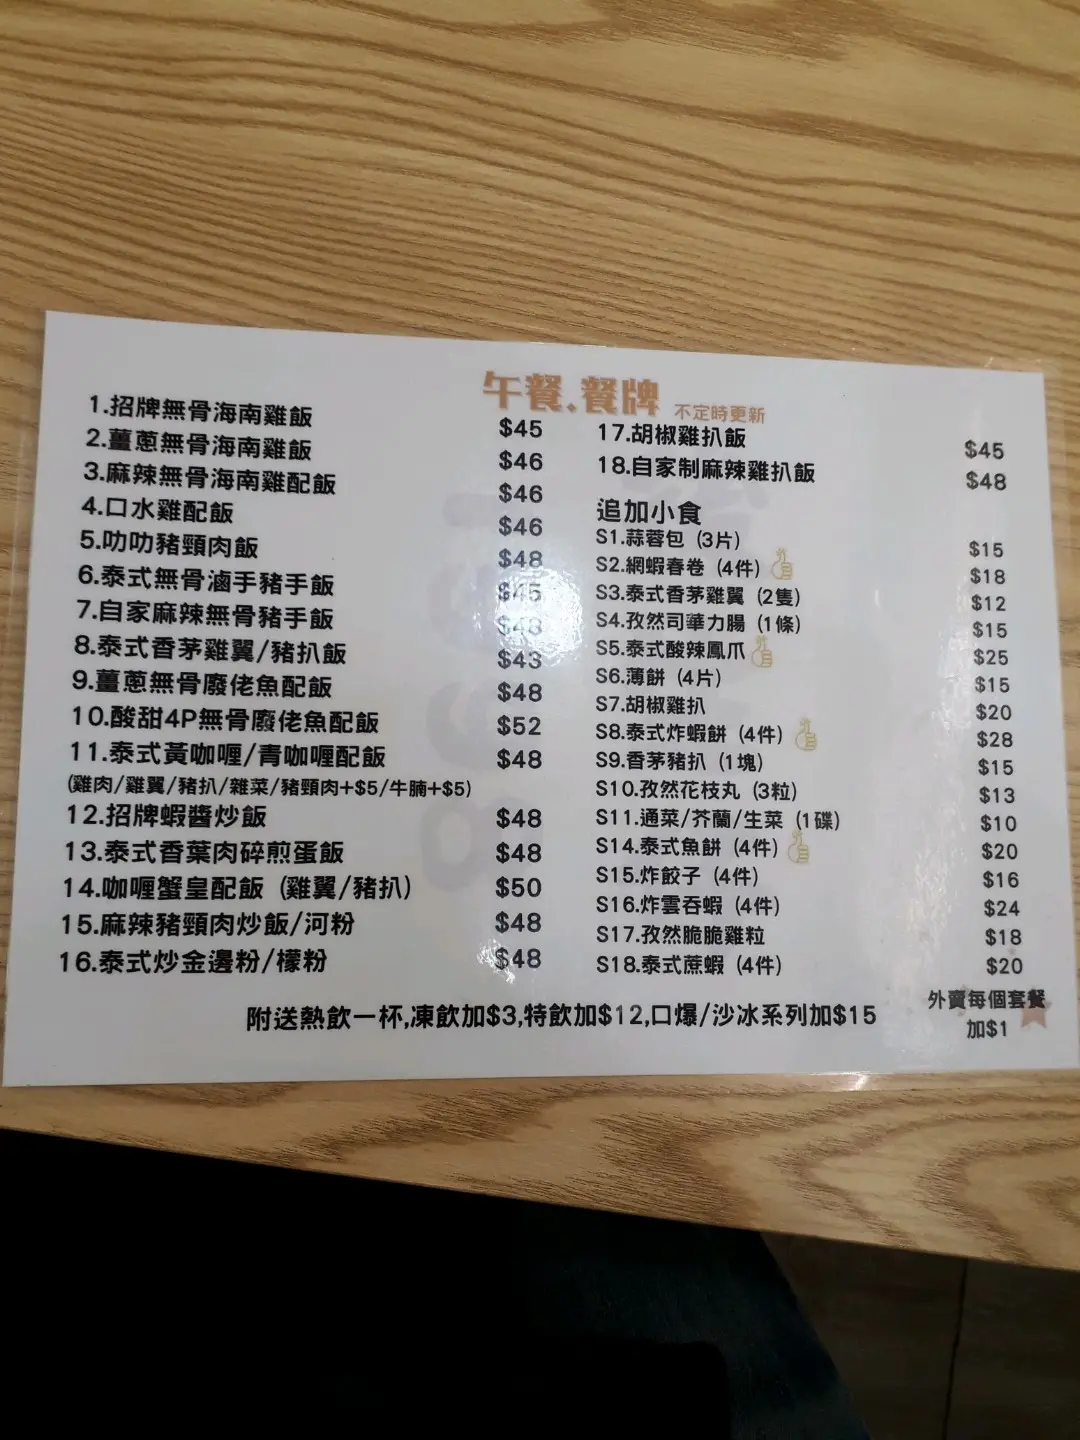 午餐.餐牌 不定時更新
1.招牌無骨海南雞飯 $45
2.薑蔥無骨海南雞飯 $46
3.麻辣無骨海南雞配飯 $46
4.口水雞配飯 $46
5.叻叻豬頸肉飯 $48
6.泰式無骨滷手豬手飯 $45
7.自家麻辣無骨豬手飯 $48
8.泰式香茅雞翼/豬扒飯 $43
9.薑蔥無骨廢佬魚配飯 $48
10.酸甜4P無骨廢佬魚配飯 $52
11.泰式黃咖喱/青咖喱配飯 $48
(雞肉/雞翼/豬扒/雜菜/豬頸肉+$5/牛腩+$5)
12.招牌蝦醬炒飯 $48
13.泰式香葉肉碎煎蛋飯 $48
14.咖喱蟹皇配飯 (雞翼/豬扒) $50
15.麻辣豬頸肉炒飯/河粉 $48
16.泰式炒金邊粉/檬粉 $48
17.胡椒雞扒飯 $45
18.自家制麻辣雞扒飯 $48
追加小食
S1.蒜蓉包 (3片) $15
S2.網蝦春卷 (4件) $18
S3.泰式香茅雞翼 (2隻) $12
S4.孜然司華力腸 (1條) $15
S5.泰式酸辣鳳爪 $25
S6.薄餅 (4片) $15
S7.胡椒雞扒 $20
S8.泰式炸蝦餅 (4件) $28
S9.香茅豬扒 (1塊) $15
S10.孜然花枝丸 (3粒) $13
S11.通菜/芥蘭/生菜 (1碟) $10
S14.泰式魚餅 (4件) $20
S15.炸餃子 (4件) $16
S16.炸雲吞蝦 (4件) $24
S17.孜然脆脆雞粒 $18
S18.泰式蔗蝦 (4件) $20
附送熱飲一杯,凍飲加$3,特飲加$12,口爆/沙冰系列加$15
外賣每個套餐
加$1